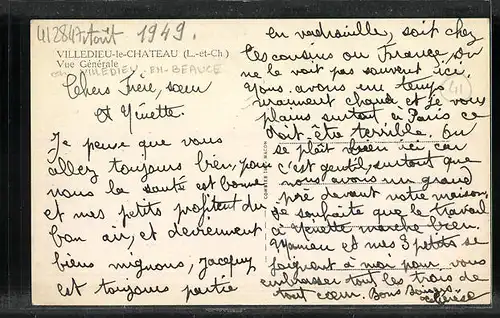 412847 Août 1949.
VILLEDIEU-le-CHATEAU (L.-et-Ch.)
Vue Générale
VILLEDIEU-EN-BEAUCE
Chers Frère, sœur
et Ginette.
Je pense que vous
allez toujours bien, pour
nous la santé est bonne
et mes petits profitent du
bon air, et deviennent
biens mignons, Jacquy
est toujours partie
en vadrouille, soit chez
les cousins ou France, on
ne le voit pas souvent ici.
Nous avons un temps
vraiment chaud et je vous
plains surtout à Paris ce
doit être terrible. On
se plaît bien ici car
c'est gentil, surtout que
nous avons un grand
pré devant notre maison.
Je souhaite que le travail
à Ginette marche bien.
Mamien et mes 3 petits se
joignent à moi pour vous
embrasser tout les trois de
tout cœur. Bons Baisers
Thérèse
41